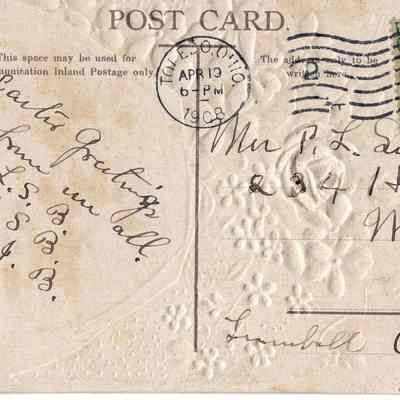 POST CARD.
This space may be used for
munication Inland Postage only
The address only to be
written here.
TOLEDO, OHIO.
APR 19
6-PM
1908
Easter Greetings
from us all.
L. S. B.
S. B.
J. B.
P. L.
234 H
Trumbull